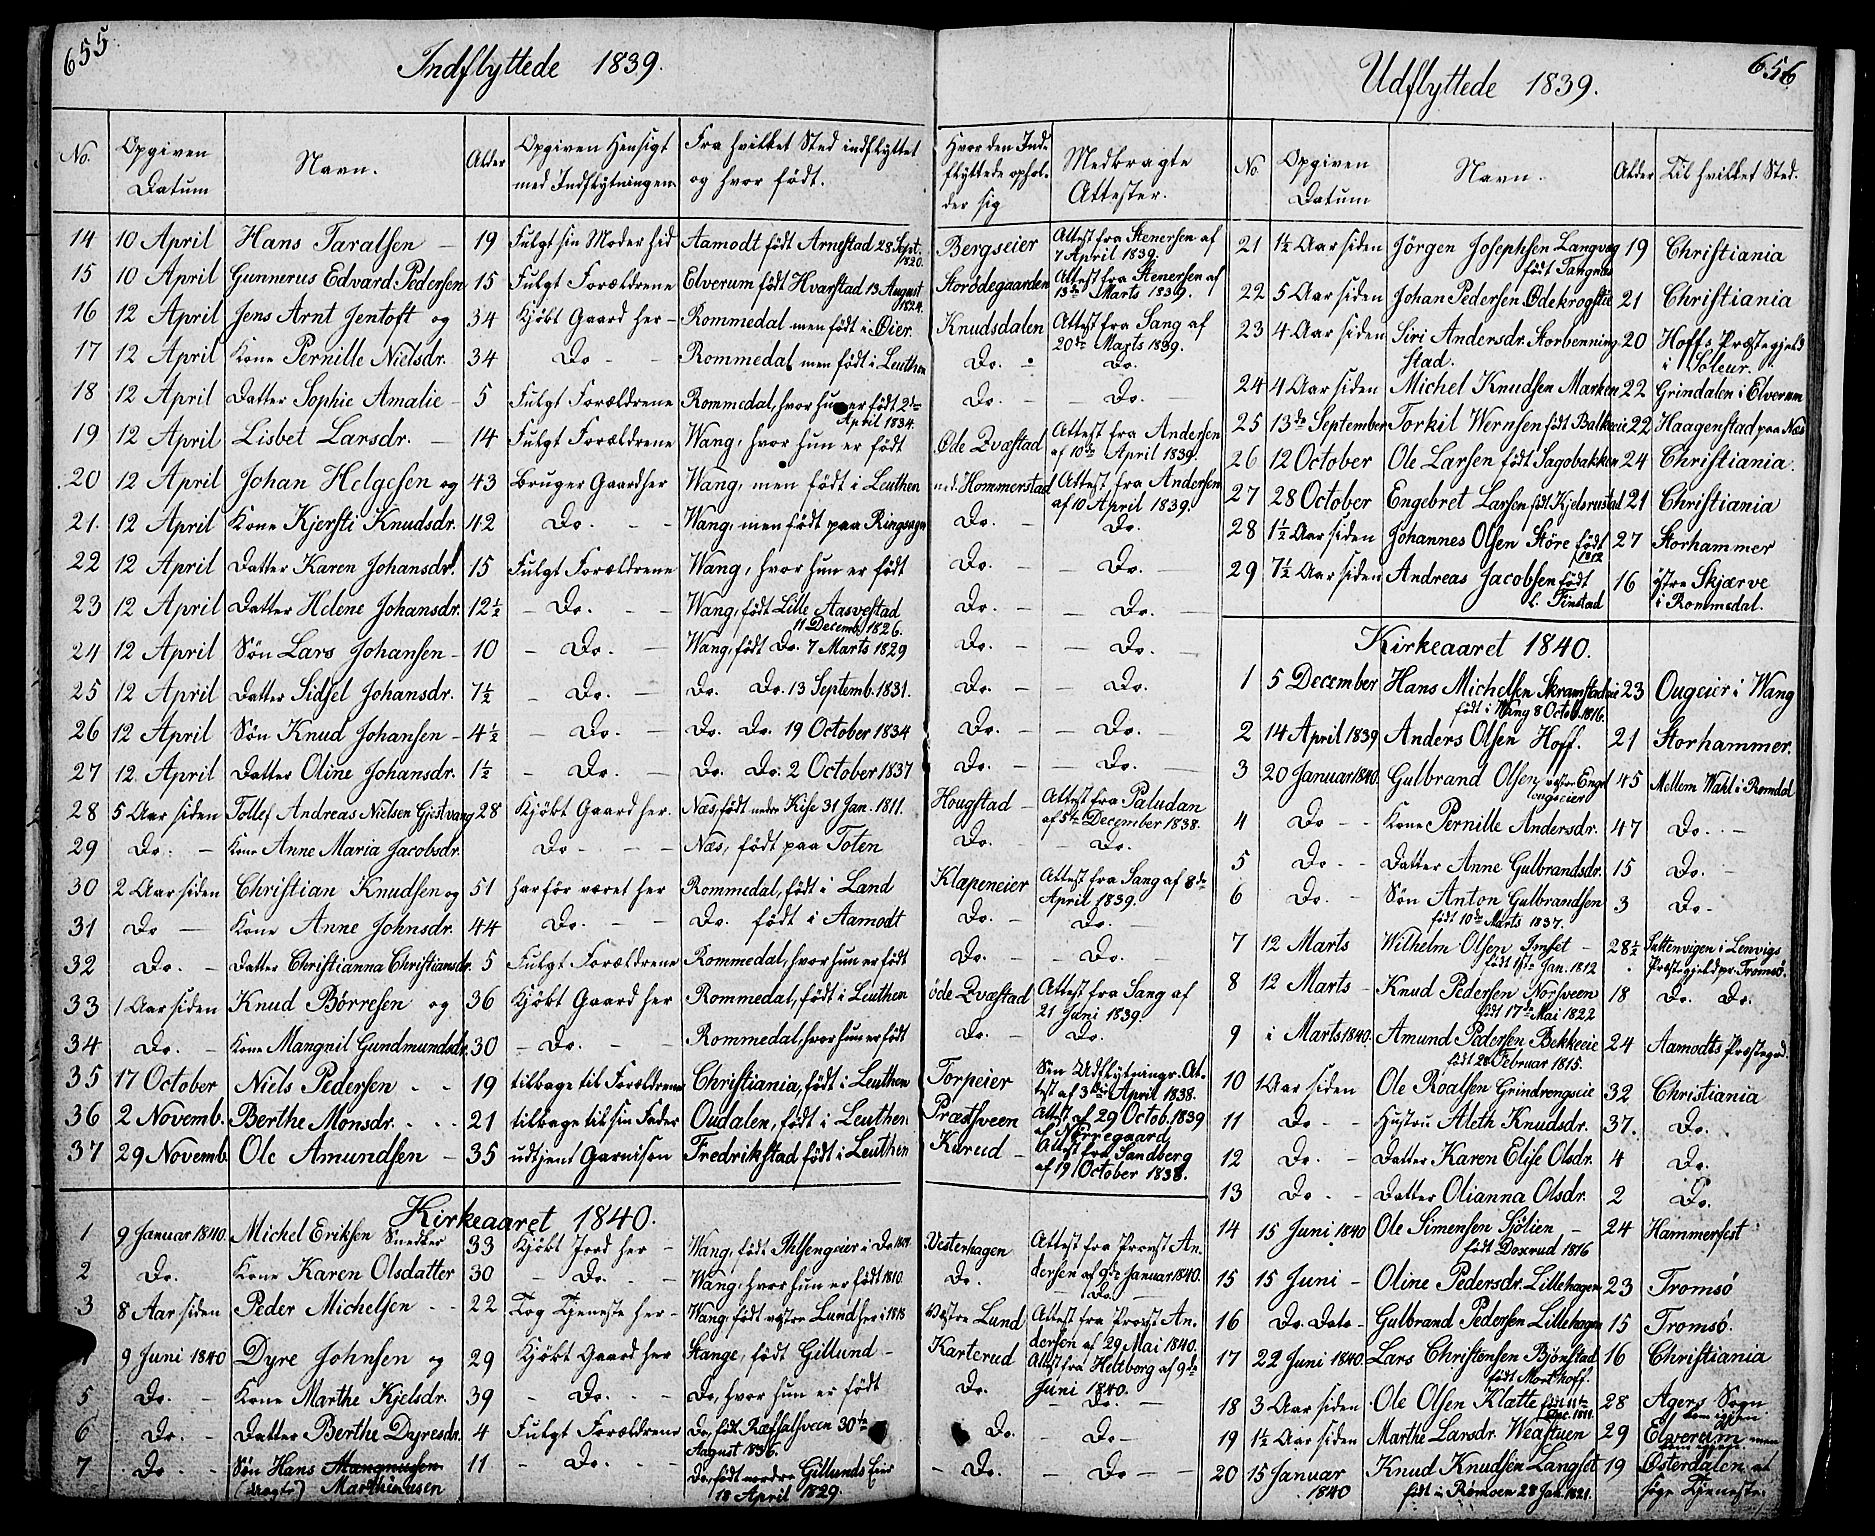 655
Indflyttede 1839.
No. Opgiven Datum Navn. Alder Opgiven Hensigt med Indflytningen Fra hvilket Sted indflyttet og hvor født. Hvor den Indflyttede opholder sig Medbragte Attester.
14 10 April Hans Taralsen - 19 Fulgt sin Moder hid Aamodt født Arnestad 28 Sept. 1820. Bergseier Attest fra Stenersen af 7 April 1839.
15 10 April Gunnerus Edvard Pedersen 15 Fulgt Forældrene Elverum født Hvarstad 13 August 1824. Storødegaarden Attest fra Stenersen af 13de Marts 1839.
16 12 April Jens Arnt Jentoft og 34 Kjøbt Gaard her - Rommedal men født i Øier. Knudsdalen Attest fra Sang af 20de Marts 1839.
17 12 April Kone Pernille Nielsdr. 34 Do - - Rommedal men født i Leuthen Do. - Do.
18 12 April Datter Sophie Amalie - 5 Fulgt Forældrene Rommedal, hvor hun er født 2de April 1834. Do. - - Do. -
19 12 April Lisbet Larsdr. - 14 Fulgt Forældrene Wang, hvor hun er født Øde Qvæstad Attest fra Andersen af 10de April 1839.
20 12 April Johan Helgesen og 43 Bruger Gaard her Wang, men født i Leuthen ned. Hommerstad Attest fra Andersen af 10 April 1839.
21. 12 April Kone Kjersti Knudsdr. 42 Do. - - Wang, men født paa Ringsager Do. - Do.
22 12 April Datter Karen Johansdr. 15 Fulgt Forældrene Wang, hvor hun er født Do. - - Do. -
23 12 April Datter Helene Johansdr. 12½ - Do. - - Wang, født Lille Aasvestad 11 Decemb. 1826. Do. - - Do. -
24 12 April Søn Lars Johansen - 10 - Do. - Wang, født Do. 7 Marts 1829 Do. - - Do. -
25 12 April Datter Sidsel Johansdr. 7½ - Do. - Do. Do. 13 Septemb. 1831. Do. - - Do.
26 12 April Søn Knud Johansen - 4½ - Do. - Do. Do. 19 October 1834 Do. - - Do. -
27 12 April Datter Oline Johansdr. 1½ - Do. - Do. Do. 2 October 1837 Do. - - Do. -
28 5 Aar siden Tollef Andreas Nielsen Gjestvang 28 Kjøbt Gaard her. Næs, født nedre Kise 31 Jan. 1811. Hougstad - Attest fra Paludan af 5te December 1838.
29 Do. - Kone Anne Maria Jacobsdr. Do - - - Næs, født paa Toten Do. - - Do.
30 2 Aar siden Christian Knudsen og 51 har før været her Rommedal, født i Land Klæpeneier Attest fra Sang af 8de April 1839.
31 Do - Kone Anne Johnsdr. 44 Do. - - Do. født i Aamodt Do. - Do.
32 Do. - Datter Christianna Christiansdr. 5 Fulgt Forældrene Rommedal, hvor hun er født Do. - - Do. -
33 1 Aar siden Knud Börresen og 36 Kjøbt Gaard her Rommedal, født i Leuthen øde Qvæstad Attest fra Sang af 21 Juni 1839.
34 Do. - Kone Mangnil Gundmundsdr. 30 - Do. - Rommedal, hvor hun er født Do. - Do.
35 17 October Niels Pedersen - - 19 tilbage til Forældrene Christiania, født i Leuthen Torpeier Sin Udflytnings-Attest af 3die April 1838.
36 2 Novemb. Berthe Monsdr. - - - 21 tilbage til sin Fader Oudalen, født i Leuthen Præstsveen Attest af 29 Octob. 1839 af Nerregaard
37 29 Novemb. Ole Amundsen - 35 udtjent Garnison Fredrikstad født i Leuthen Karud - Attest fra Sandberg af 19 October 1838.
Kirkeaaret 1840.
1 9 Januar 1840. Michel Eriksen Snedker 33 Kjøbt Jord her - Wang, født i Do Vesterhagen Attest fra Provst Andersen af 9de Januar 1840.
2 Do. Kone Karen Olsdatter 30 - Do. - Wang, hvor hun er født 1810. Do. - Do. -
3 8 Aar siden Peder Michelsen - - 22 Tog Tjeneste her - Wang, født østre Lund her i 1818 Østre Lund Attest fra Provst Andersen af 29 Mai 1840.
9 Juni 1840 Dyre Johnsen og 29 Kjøbt Gaard her Stange, født Gillund - Karterud Attest fra Heltborg af 9de Juni 1840.
5 Do. - Kone Marthe Kjelsdr. 39 - Do. - Do, hvor hun er født Do. - Do. -
6 Do. - Datter Berthe Dyresdr. 4 Fulgt Forældrene Do, født Ræfsalsveen 30te August 1836. Do. - Do -
7 Do - Søn Hans Mangnusen (dragt) Marthinusen 11 - Do. - Do, født nordre Gillunds Eier 18 April 1829. - Do. - Do -
656
Udflyttede 1839.
No. Opgiven Datum Navn. Alder Til hvilket Sted.
21 1½ Aar siden Jörgen Josephsen Langvag født Tangnæs 19 Christiania
22 5 Aar siden Johan Pedersen Ødekrogstie 21 Christiania
23 4 Aar siden Siri Andersdr. Storbenningstad. 20 Hoffs Præstegjeld i Soleur.
24 4 Aar siden Michel Knudsen Marken 22 Grindalen i Elverum
25 13de September Torkil Wernsen født Balkeeie 22 Haagenstad paa Næs
26 12 October Ole Larsen født Sagobakken 24 Christiania.
27 28 October Engebret Larsen født Kjelsrustad 21 Christiania
28 1½ Aar siden Johannes Olsen Störe født 1812 27 Storhammer
29 7½ Aar siden Andreas Jacobsen født L. Finstad 16 østre Skjærve i Rommedal.
Kirkeaaret 1840.
1 5 December Hans Michelsen Skramstadeie født i Wang 8 Octob. 1816. 23 Ougeier i Wang
2 14 April 1839 Anders Olsen Hoff. 21 Storhammer.
3 20 Januar 1840. Gulbrand Olsen 45 Mellem Wahl i Romdal
4 Do - - Kone Pernille Andersdr. 47 Do. -
5 Do. - Datter Anne Gulbrandsdr. 15 Do. -
6 Do. - Søn Anton Gulbrandsen født 10de Marts 1837. 3 Do -
7 12 Marts Wilhelm Olsen Imset - født 1ste Jan. 1812 28½ Sattenvigen i Lenvigs Præstegjeld pr. Tromsø.
8 12 Marts - Knud Pedersen Norsveen født 17de Mai 1822 18 Do. Do.
9 i Marts 1840. Amund Pedersen Bekkeeie født 28 Februar 1815. 24 Aamodts Præstegjd.
10 1 Aar siden Ole Roalsen Grindrengseie 32 Christiania
11 Do - - Hustru Aleth Knudsdr. 37. Do.
12 Do. - Datter Karen Elise Olsdr. 4 Do.
13 Do. - - Datter Olianna Olsdr. 2 Do.
14 15 Juni 1840 Ole Simensen Sjölien - født Doxrud 1816 24 Hammerfest
15 15 Juni - Oline Pedersdr. Lillehagen 23 Tromsö
16 Do. Dato - Gulbrand Pedersen Lillehagen 15 Tromsö.
17 22 Juni 1840. Lars Christensen Bjönstad født Morthoff. 16 Christiania
18 3 Aar siden Ole Olsen Klatte født 11te Dec. 1811. 28 Agers Sogn kom igjen
19 1½ Aar siden Marthe Larsdr. Weastuen 29 Elverum
20 15 Januar 1840 Knud Knudsen Langset født i Rømoen 28 Jan. 1821. 19 Østerdalen at søge Tjeneste.